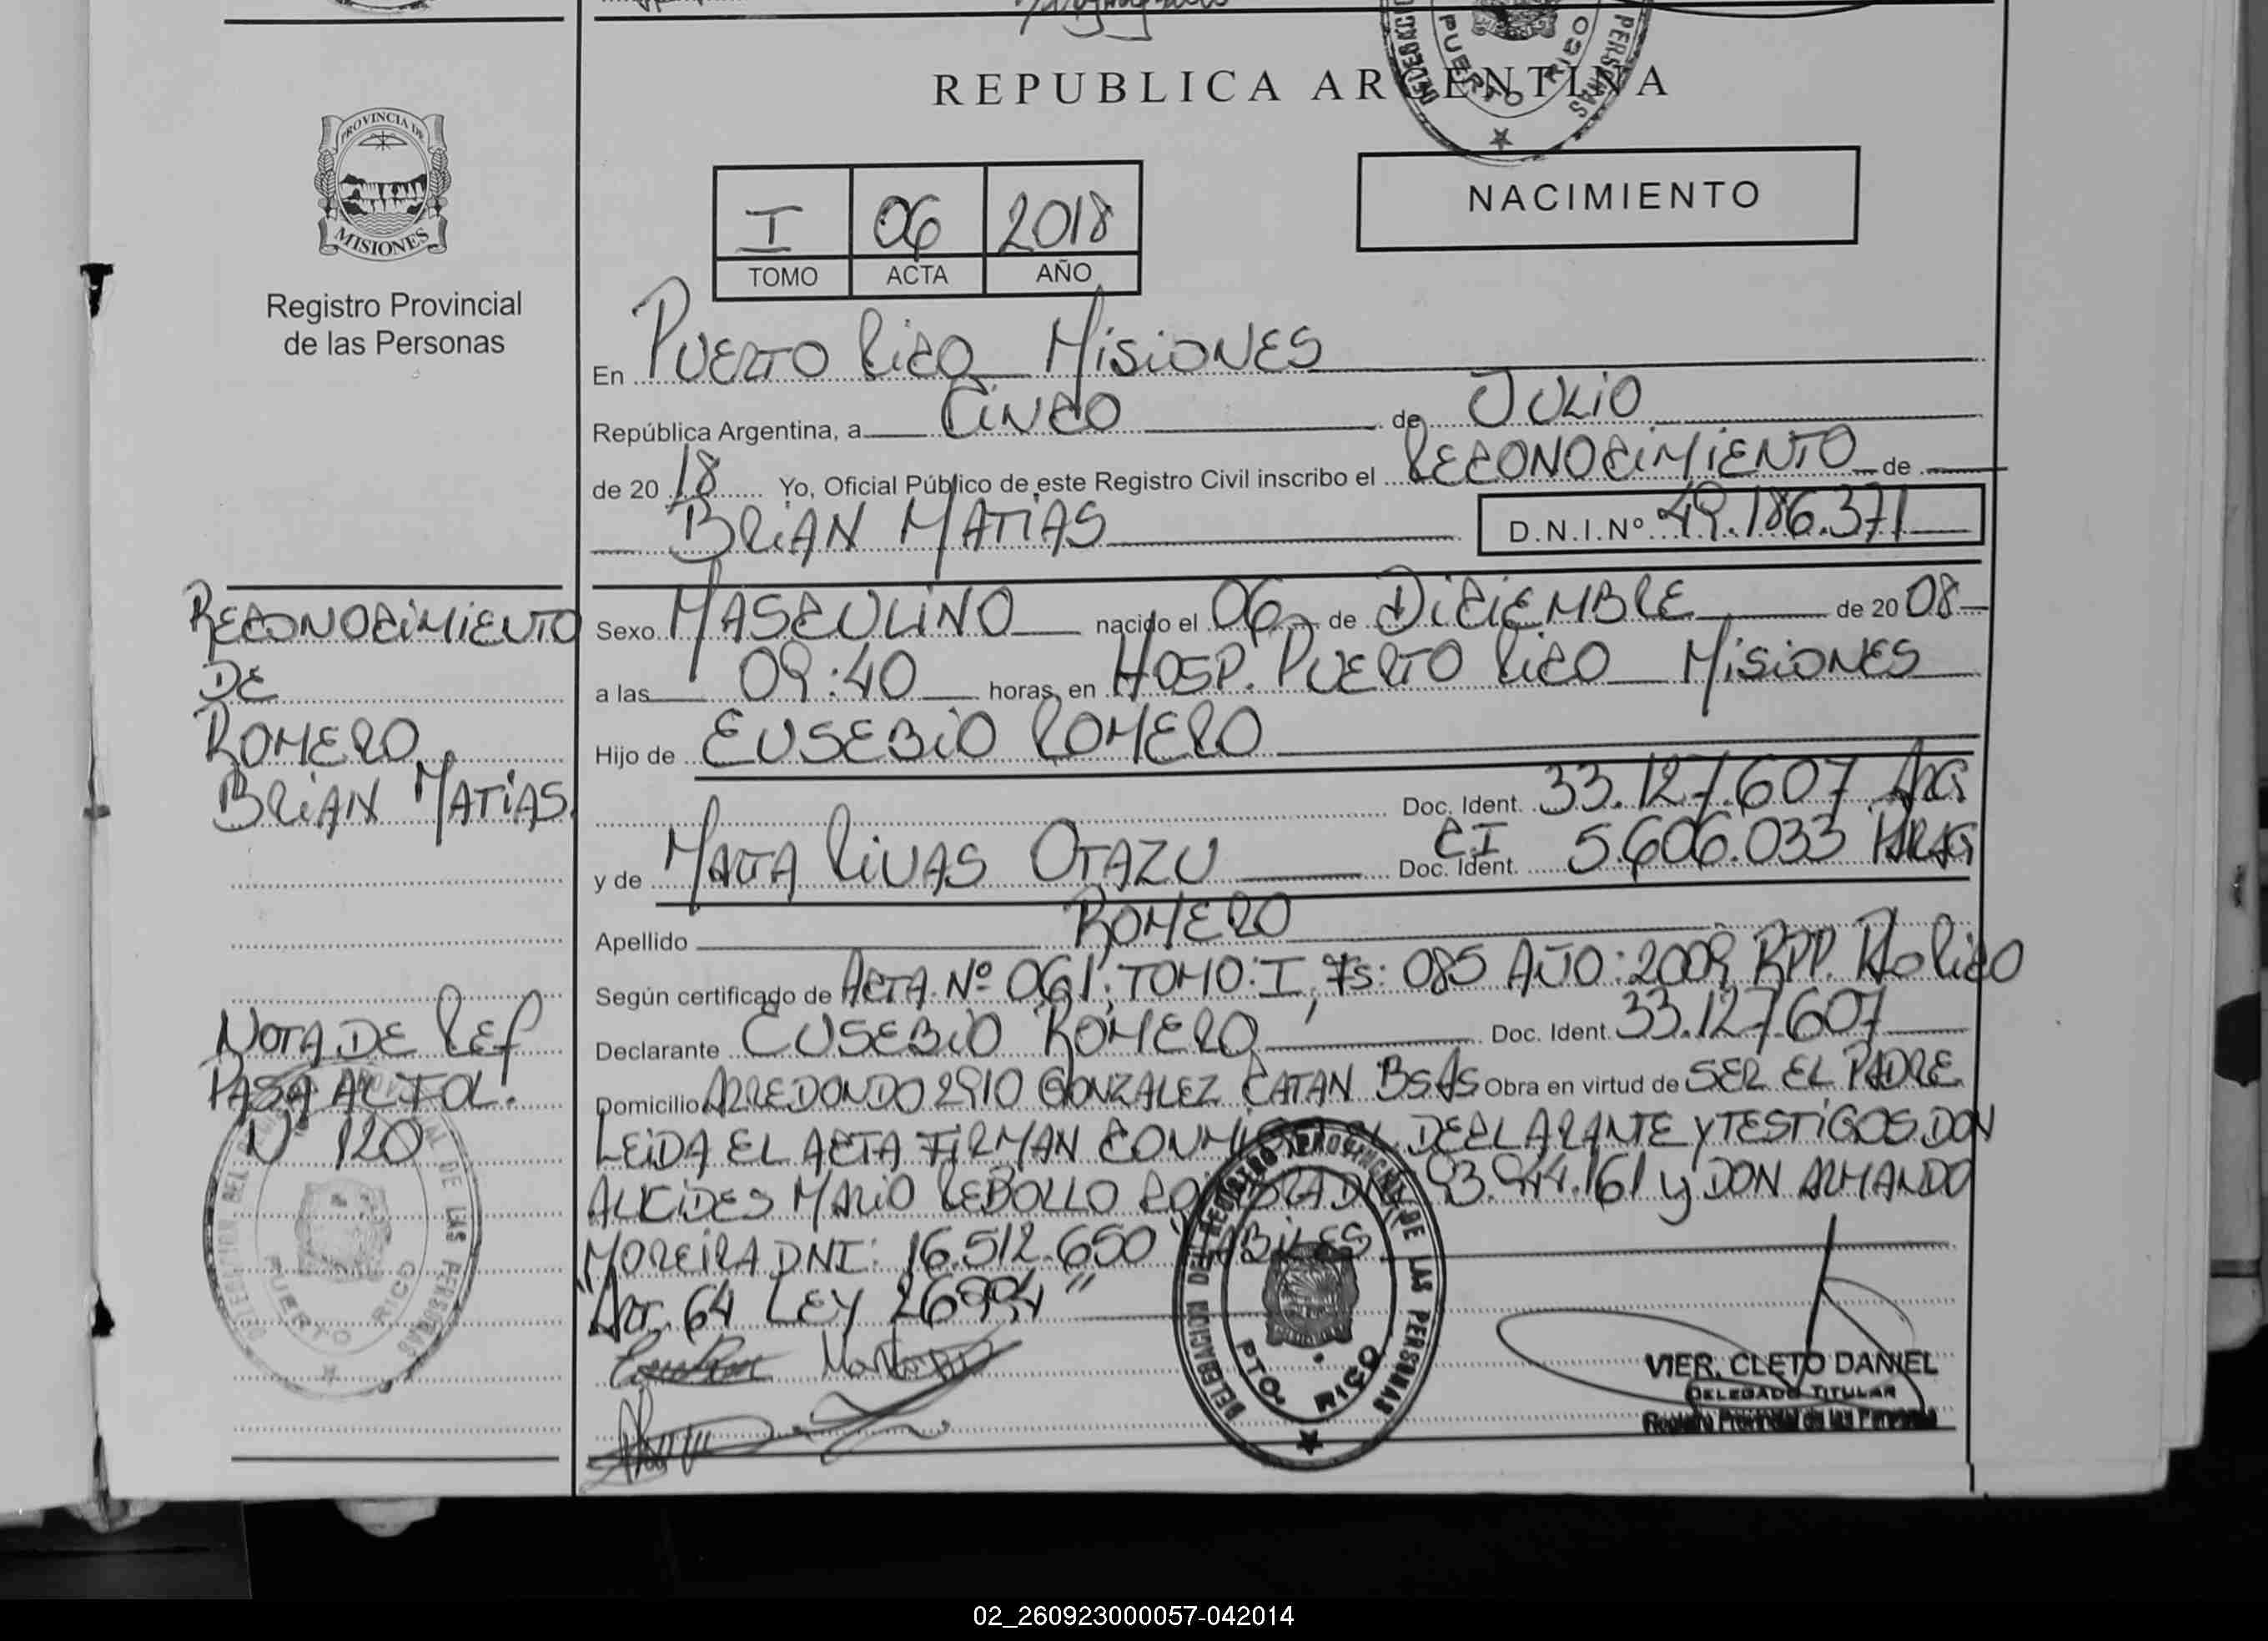 REPUBLICA ARGENTINA
PUERTO RICO
PERSONAS
PROVINCIA DE
MISIONES
Registro Provincial
de las Personas
I 06 2018
TOMO ACTA AÑO
NACIMIENTO
En PUERTO RICO MISIONES
República Argentina, a CINCO de JULIO
de 20 18 Yo, Oficial Público de este Registro Civil inscribo el RECONOCIMIENTO de
BRIAN MATIAS D.N.I.Nº 49.186.371
Sexo MASCULINO nacido el 06 de DICIEMBRE de 20 08
a las 09:40 horas, en HOSP. PUERTO RICO MISIONES
Hijo de EUSEBIO ROMERO
Doc. Ident. 33.127.607 ARG
y de MARTA RIVAS OTAZU CI Doc. Ident. 5.606.033 PARAG
Apellido ROMERO
Según certificado de ACTA Nº 061; TOMO: I, Fs: 085 AÑO: 2009 RPP. Pto Rico
Declarante EUSEBIO ROMERO Doc. Ident. 33.127.607
Domicilio ARREDONDO 2910 GONZALEZ CATAN BSAS Obra en virtud de SER EL PADRE
LEIDA EL ACTA FIRMAN CONMIGO EL DECLARANTE Y TESTIGOS DON
ALCIDES MARIO REBOLLO 93.944.161 y DON ARMANDO
MOREIRA DNI: 16.512.650 HABILES
"Art. 64 LEY 26994"
RECONOCIMIENTO
DE
ROMERO
BRIAN MATIAS.
NOTA DE REF
PASA AL FOL.
Nº 120
DELEGACION DEL REGISTRO PROVINCIAL DE LAS PERSONAS
PUERTO RICO
DELEGACION DEL REGISTRO PROVINCIAL DE LAS PERSONAS
PTO. RICO
VIER, CLETO DANIEL
DELEGADO TITULAR
Registro Provincial de las Personas
02_260923000057-042014